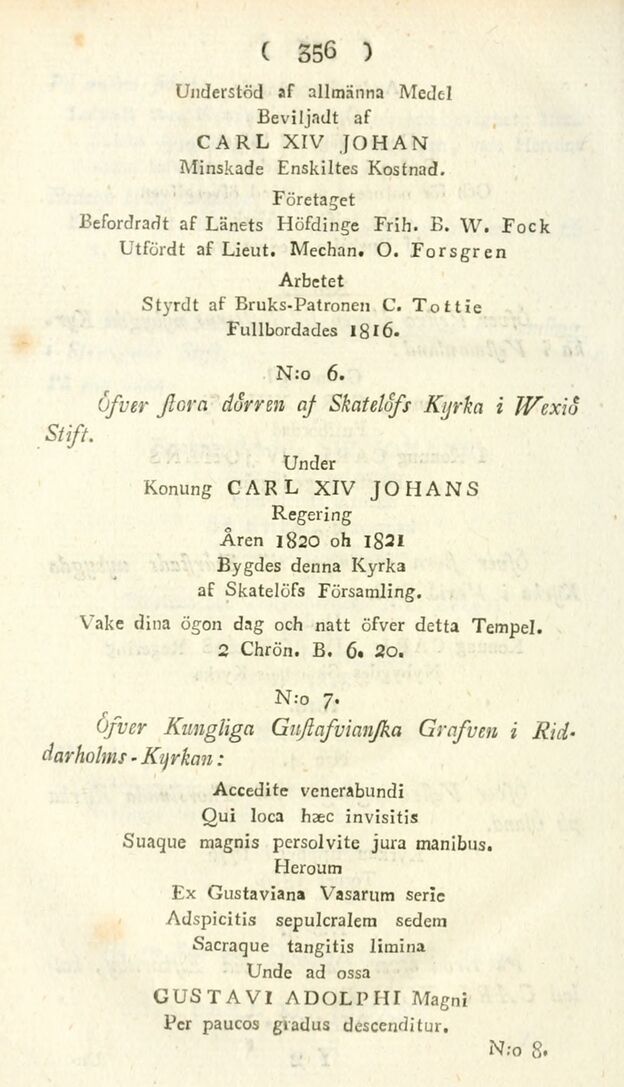 ( 356 )
Understöd af allmänna Medel
Beviljadt af
CARL XIV JOHAN
Minskade Enskiltes Kostnad.
Företaget
Befordradt af Länets Höfdinge Frih. B. W. Fock
Utfördt af Lieut. Mechan. O. Forsgren
Arbetet
Styrdt af Bruks-Patronen C. Tottie
Fullbordades 1816.
N:o 6.
Öfver ſtora dörren af Skatelöfs Kyrka i Wexiö
Stift.
Under
Konung CARL XIV JOHANS
Regering
Åren 1820 oh 1821
Bygdes denna Kyrka
af Skatelöfs Församling.
Vake dina ögon dag och natt öfver detta Tempel.
2 Chrön. B. 6. 20.
N:o 7.
Öfver Kungliga Guſtafvianſka Grafven i Rid-
darholms-Kyrkan:
Accedite venerabundi
Qui loca hæc invisitis
Suaque magnis persolvite jura manibus.
Heroum
Ex Gustaviana Vasarum serie
Adspicitis sepulcralem sedem
Sacraque tangitis limina
Unde ad ossa
GUSTAVI ADOLPHI Magni
Per paucos gradus descenditur.
N:o 8.